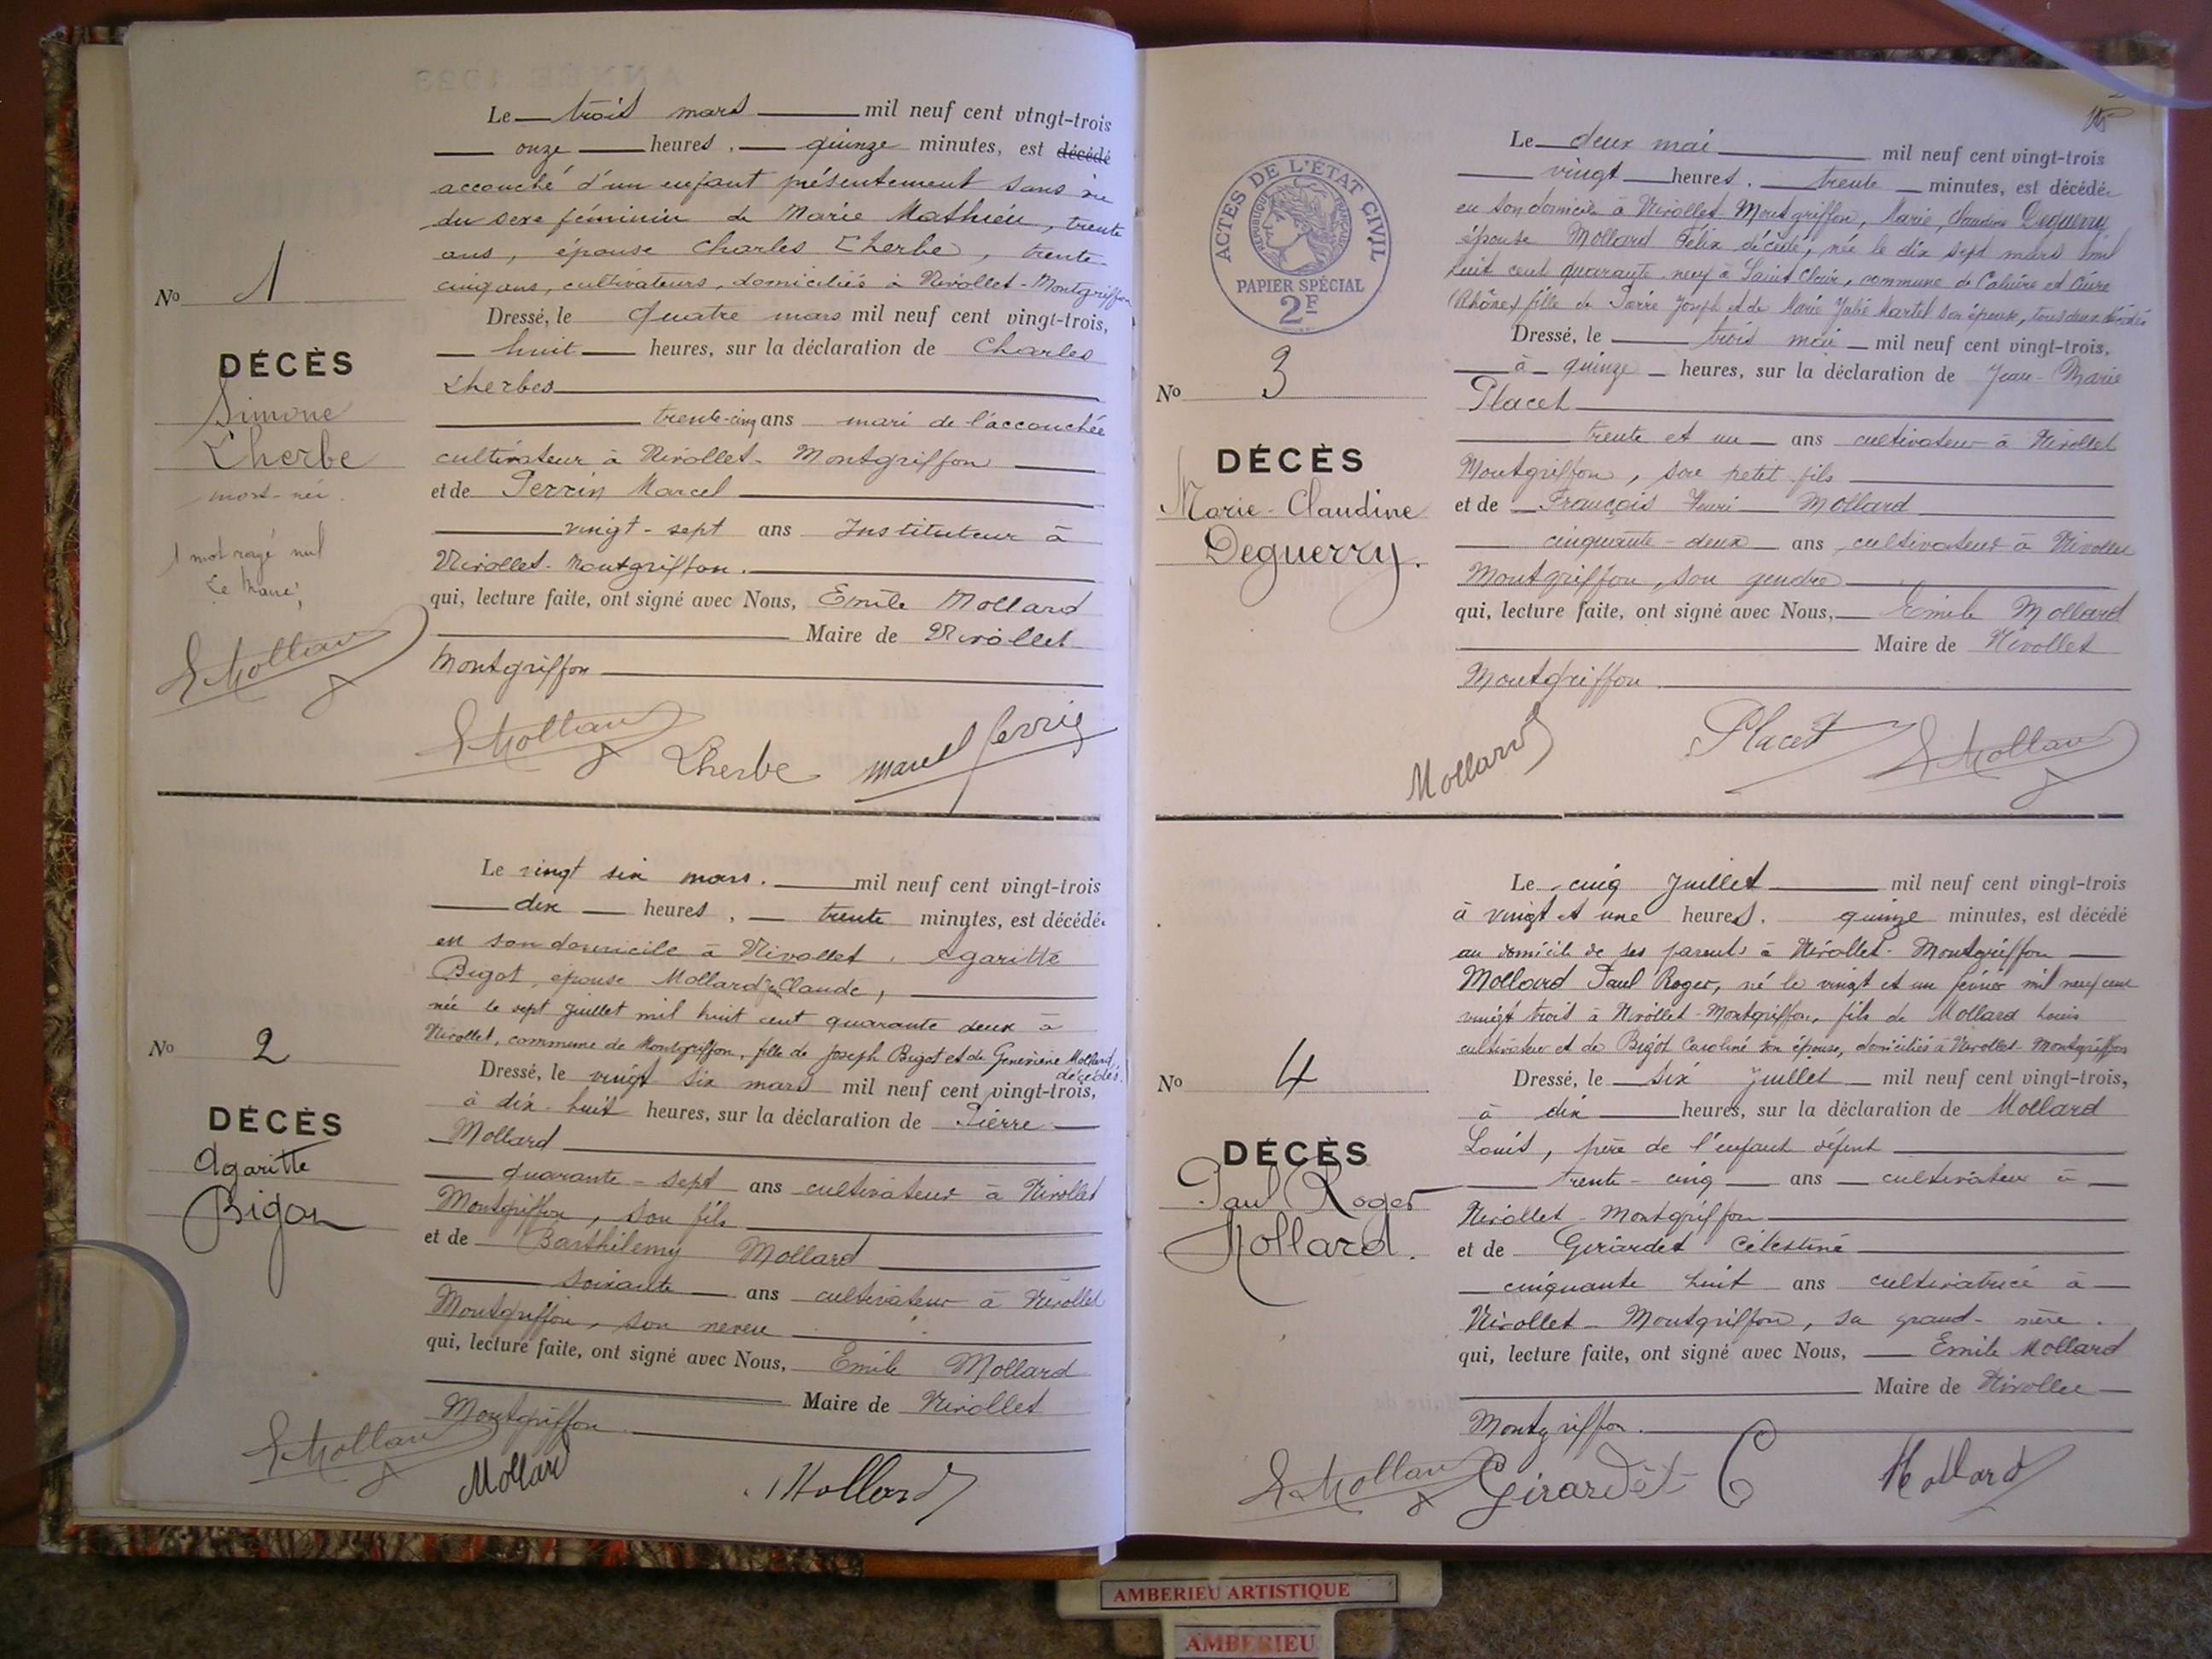 Le trois mars mil neuf cent vingt-trois
onze heures, quinze minutes, est décédé
accouché d'un enfant présentement sans vie
du sexe féminin de Marie Mathieu, trente
ans, épouse Charles Lherbe, trente
cinq ans, cultivateurs, domiciliés à Nivollet-Montgriffon
Dressé, le quatre mars mil neuf cent vingt-trois,
huit heures, sur la déclaration de Charles
Lherbe
trente-cinq ans mari de l'accouchée
cultivateur à Nivollet-Montgriffon
et de Perrin Marcel
vingt-sept ans Instituteur à
Nivollet-Montgriffon.
qui, lecture faite, ont signé avec Nous, Emile Mollard
Maire de Nivollet
Montgriffon
No 1
DÉCÈS
Simone
Lherbe
mort-née.
1 mot rayé nul
Le Maire,
E Mollard
E Mollard Lherbe Marcel Perrin
Le vingt six mars. mil neuf cent vingt-trois
dix heures, trente minutes, est décédée
en son domicile à Nivollet, Agaritte
Bigot, épouse Mollard Claude,
née le sept juillet mil huit cent quarante deux à
Nivollet, commune de Montgriffon, fille de Joseph Bigot et de Geneviève Mollard,
décédés.
Dressé, le vingt six mars mil neuf cent vingt-trois,
à dix-huit heures, sur la déclaration de Pierre
Mollard
quarante-sept ans cultivateur à Nivollet
Montgriffon, son fils
et de Barthélemy Mollard
soixante ans cultivateur à Nivollet
Montgriffon, son neveu
qui, lecture faite, ont signé avec Nous, Emile Mollard
Maire de Nivollet
Montgriffon
No 2
DÉCÈS
Agaritte
Bigot
E Mollard Mollard Mollard
ACTES DE L'ÉTAT CIVIL
RÉPUBLIQUE FRANÇAISE
PAPIER SPÉCIAL
2F
Le deux mai mil neuf cent vingt-trois
vingt heures. trente minutes, est décédée
en son domicile à Nivollet-Montgriffon, Marie, Claudine Deguerry
épouse Mollard Félix décédé, née le dix sept mars mil
huit cent quarante-neuf à Saint Clair, commune de Caluire et Cuire
(Rhône) fille de Pierre Joseph et de Marie Julie Martel son épouse, tous deux décédés
Dressé, le trois mai mil neuf cent vingt-trois,
à quinze heures, sur la déclaration de Jean-Marie
Placet
trente et un ans cultivateur à Nivollet
Montgriffon, son petit fils
et de François Henri Mollard
cinquante-deux ans cultivateur à Nivollet
Montgriffon, son gendre
qui, lecture faite, ont signé avec Nous, Emile Mollard
Maire de Nivollet
Montgriffon
No 3
DÉCÈS
Marie-Claudine
Deguerry.
Mollard Placet E Mollard
Le cinq Juillet mil neuf cent vingt-trois
à vingt et une heures. quinze minutes, est décédé
au domicile de ses parents à Nivollet-Montgriffon
Mollard Paul Roger, né le vingt et un février mil neuf cent
vingt trois à Nivollet-Montgriffon, fils de Mollard Louis
cultivateur et de Bigot Caroline son épouse, domiciliés à Nivollet-Montgriffon
Dressé, le six Juillet mil neuf cent vingt-trois,
à dix heures, sur la déclaration de Mollard
Louis, père de l'enfant défunt
trente-cinq ans cultivateur à
Nivollet-Montgriffon
et de Girardet Célestine
cinquante huit ans cultivatrice à
Nivollet-Montgriffon, sa grand-mère.
qui, lecture faite, ont signé avec Nous, Emile Mollard
Maire de Nivollet
Montgriffon.
No 4
DÉCÈS
Paul Roger
Mollard.
E Mollard Girardet C Mollard
AMBERIEU ARTISTIQUE
AMBERIEU